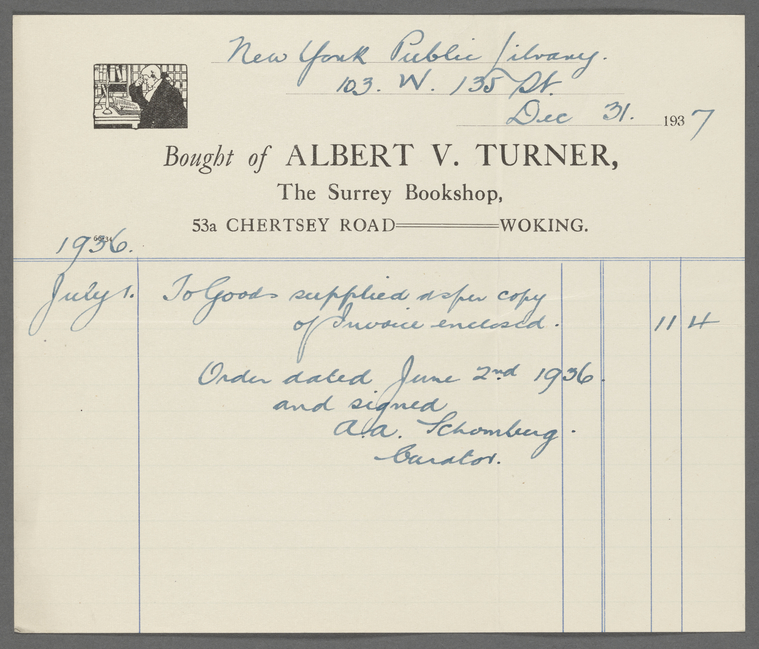 New York Public Library.
103. W. 135 St.
Dec 31. 1937
Bought of ALBERT V. TURNER,
The Surrey Bookshop,
53a CHERTSEY ROAD WOKING.
1936.
July 1. To Goods supplied as per copy
of Invoice enclosed. 11 4
Order dated June 2nd 1936.
and signed
A.A. Schomburg.
Curator.